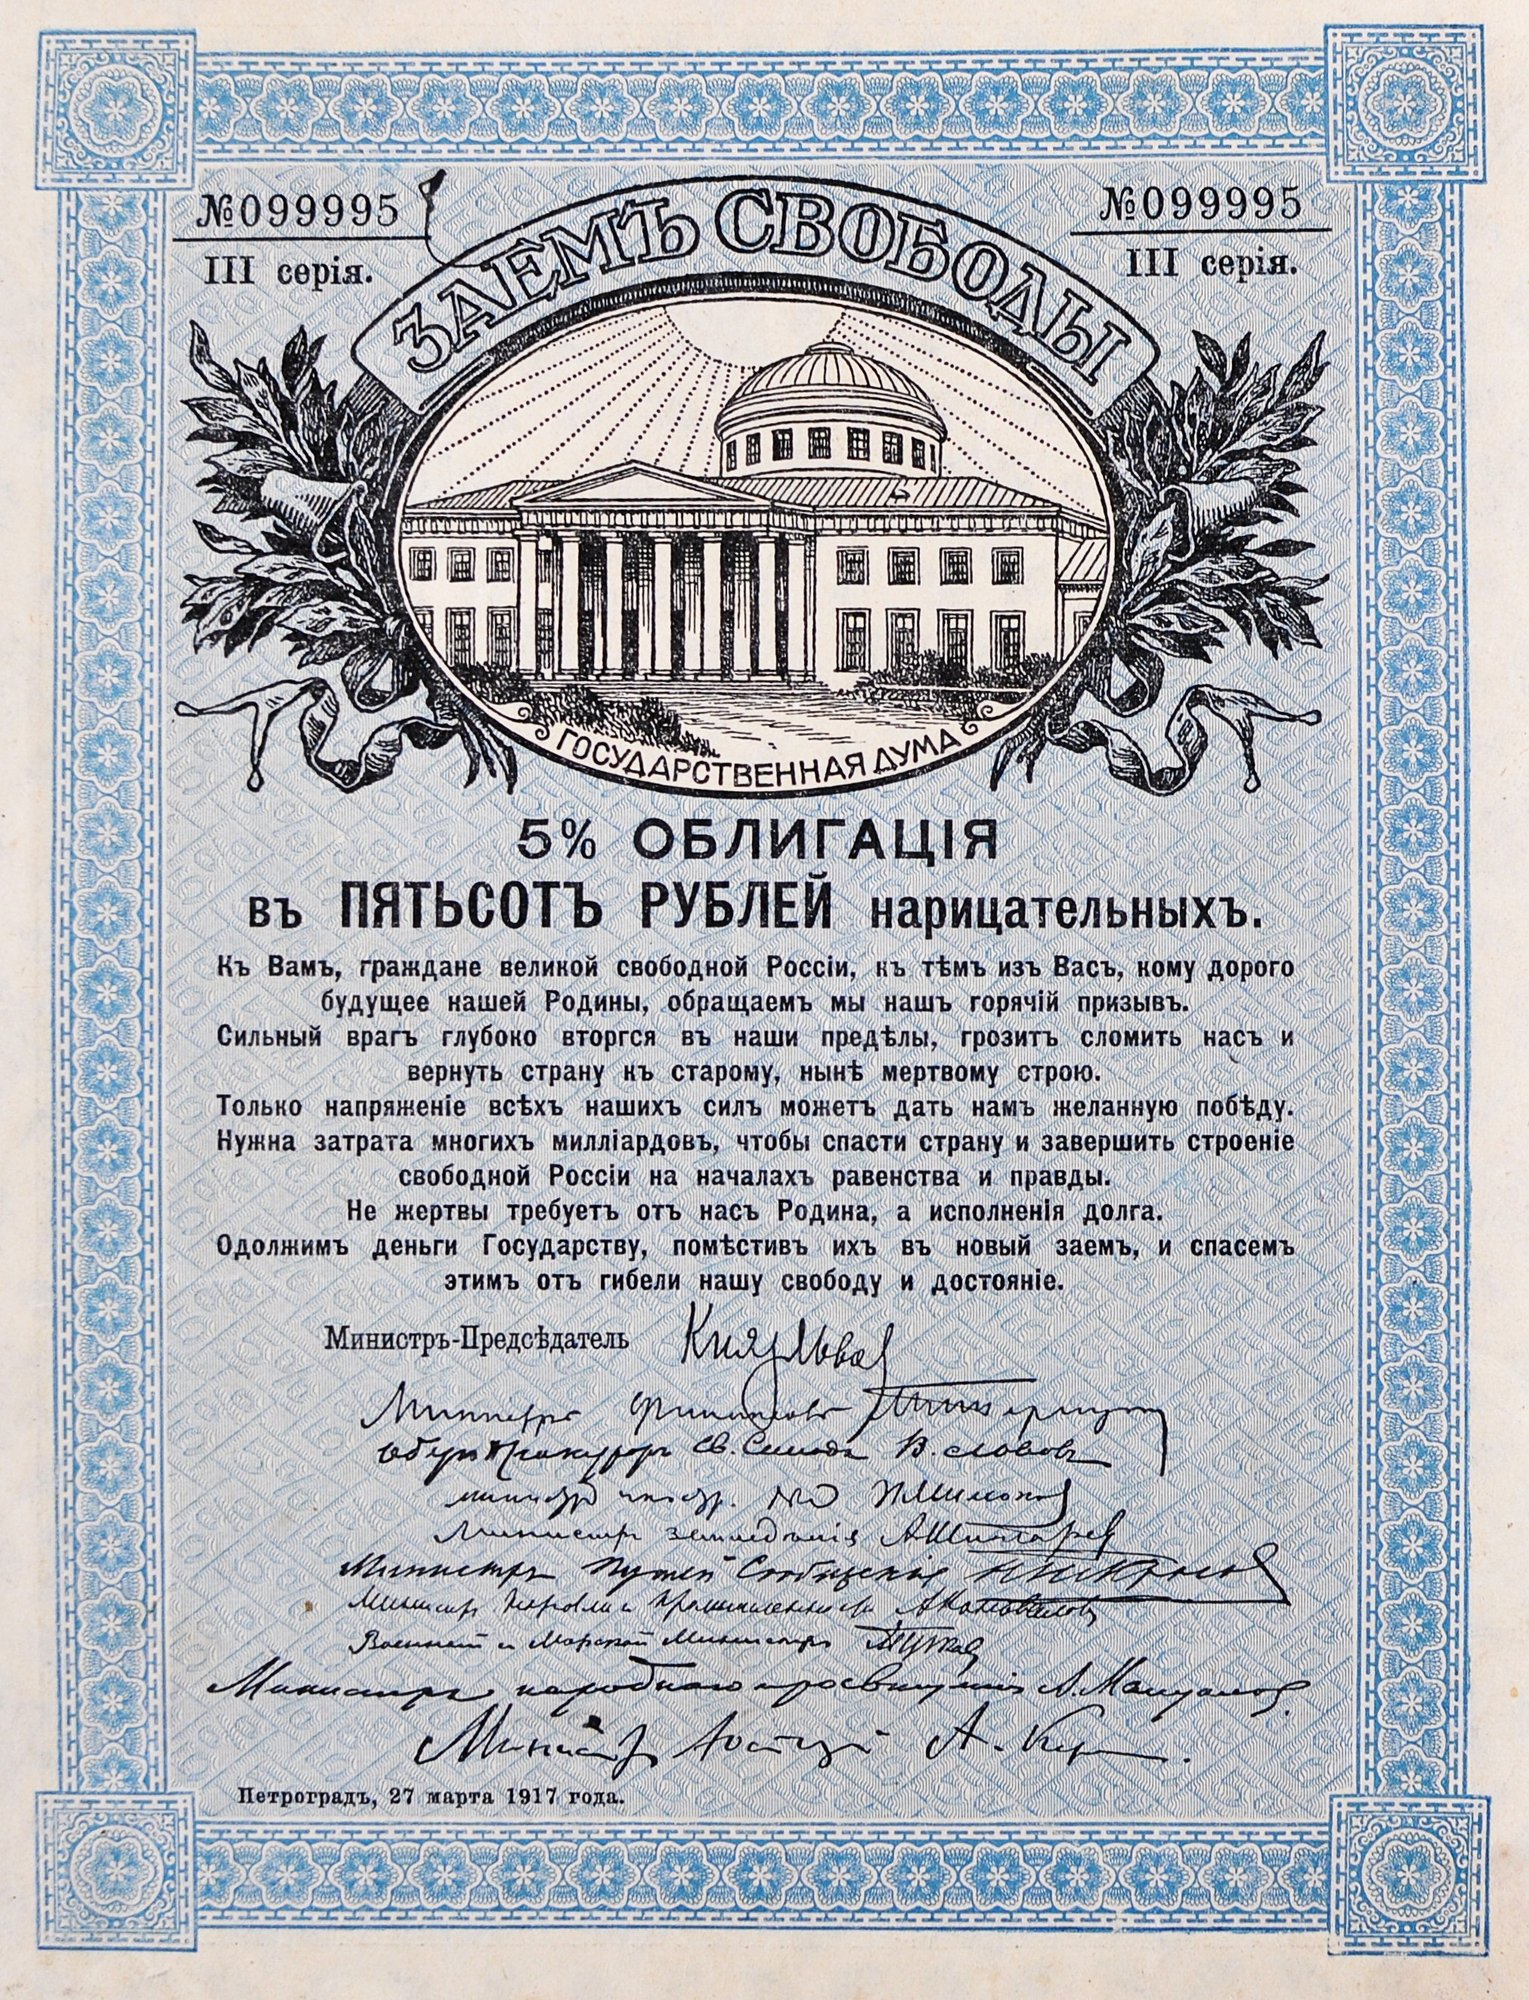 №099995
№099995
III серія.
III серія.
ЗАЕМЪ СВОБОДЫ
ГОСУДАРСТВЕННАЯ ДУМА
5% ОБЛИГАЦІЯ
въ ПЯТЬСОТЪ РУБЛЕЙ нарицательныхъ.
Къ Вамъ, граждане великой свободной Россіи, къ тѣмъ изъ Васъ, кому дорого
будущее нашей Родины, обращаемъ мы нашъ горячій призывъ.
Сильный врагъ глубоко вторгся въ наши предѣлы, грозитъ сломить насъ и
вернуть страну къ старому, нынѣ мертвому строю.
Только напряженіе всѣхъ нашихъ силъ можетъ дать намъ желанную побѣду.
Нужна затрата многихъ милліардовъ, чтобы спасти страну и завершить строеніе
свободной Россіи на началахъ равенства и правды.
Не жертвы требуетъ отъ насъ Родина, а исполненія долга.
Одолжимъ деньги Государству, помѣстивъ ихъ въ новый заемъ, и спасемъ
этимъ отъ гибели нашу свободу и достояніе.
Министръ-Предсѣдатель Князь Львов
Министръ финансовъ
Оберъ Прокуроръ Св. Синода В. Львовъ
Министръ
Министръ земледѣлія А Шингарев
Министръ Путей Сообщенія
Министръ Торговли и Промышленности А Коновалов
Военный и Морской Министръ
Министръ народнаго просвѣщенія А. Мануйлов
Министр Юстиціи А. Керенскій
Петроградъ, 27 марта 1917 года.